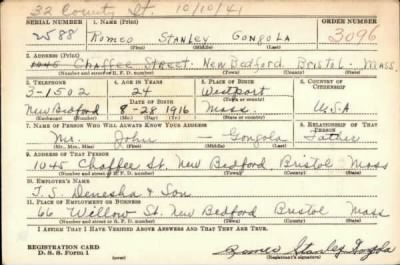 32 County St. 10/10/41
SERIAL NUMBER 1. NAME (Print) ORDER NUMBER
2588 Romeo Stanley Gongola 3096
(First) (Middle) (Last)
2. ADDRESS (Print)
1045 Chaffee Street. New Bedford Bristol. Mass.
(Number and street or R. F. D. number) (Town) (County) (State)
3. TELEPHONE 4. AGE IN YEARS 5. PLACE OF BIRTH 6. COUNTRY OF CITIZENSHIP
3-1502 24 Westport
DATE OF BIRTH (Town or county)
New Bedford 8-28-1916 Mass. U.S.A
(Exchange) (Number) (Mo.) (Day) (Yr.) (State or country)
7. NAME OF PERSON WHO WILL ALWAYS KNOW YOUR ADDRESS 8. RELATIONSHIP OF THAT PERSON
Mr. John - Gongola Father
(Mr., Mrs., Miss) (First) (Middle) (Last)
9. ADDRESS OF THAT PERSON
1045 Chaffee St. New Bedford, Bristol Mass
(Number and street or R. F. D. number) (Town) (County) (State)
10. EMPLOYER'S NAME
T.S. Denesha & Son
11. PLACE OF EMPLOYMENT OR BUSINESS
66 Willow St. New Bedford Bristol Mass
(Number and street or R. F. D. number) (Town) (County) (State)
I AFFIRM THAT I HAVE VERIFIED ABOVE ANSWERS AND THAT THEY ARE TRUE.
REGISTRATION CARD
D. S. S. Form 1 Romeo Stanley Gongola
(Registrant's signature)